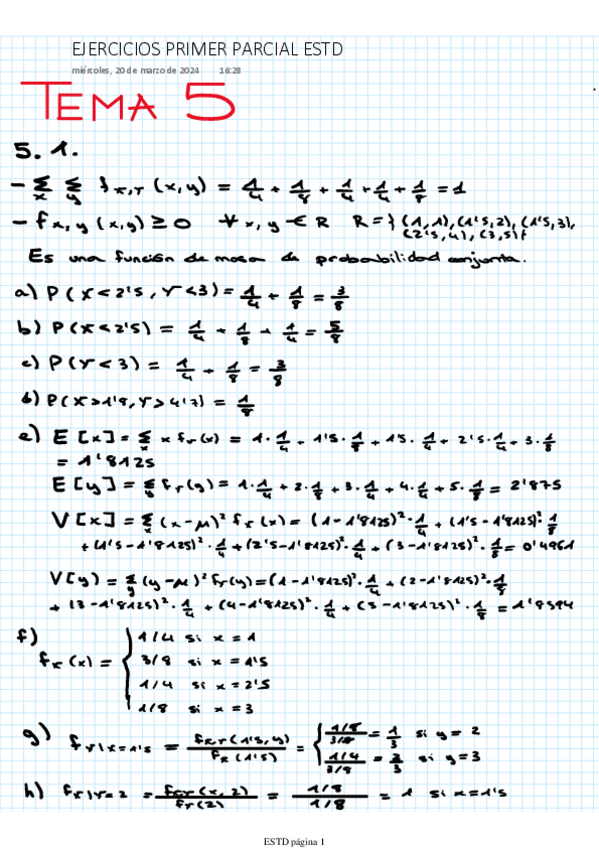 EJERCICIOS PRIMER PARCIAL ESTD
miércoles, 20 de marzo de 2024 16:28
TEMA 5
5.1.
- Σx Σy fX,Y (x,y) = 1/4 + 1/8 + 1/4 + 1/4 + 1/8 = 1
- fx,y (x,y) ≥ 0 ∀ x,y ∈ R R = {(1,1),(1'5,2),(1'5,3),
(2'5,4),(3,5)}
Es una función de masa de probabilidad conjunta.
a) P(X<2'5, Y<3) = 1/4 + 1/8 = 3/8
b) P(X<2'5) = 1/4 + 1/8 + 1/4 = 5/8
c) P(Y<3) = 1/4 + 1/8 = 3/8
d) P(X>1'8, Y>4'7) = 1/8
e) E[x] = Σx x fx(x) = 1·1/4 + 1'5·1/8 + 1'5·1/4 + 2'5·1/4 + 3·1/8
= 1'8125
E[y] = Σy fY(y) = 1·1/4 + 2·1/8 + 3·1/4 + 4·1/4 + 5·1/8 = 2'875
V[x] = Σx (x-μ)² fx(x) = (1-1'8125)²·1/4 + (1'5-1'8125)²·1/8
+ (1'5-1'8125)²·1/4 + (2'5-1'8125)²·1/4 + (3-1'8125)²·1/8 = 0'4961
V[y) = Σy (y-μ)² fY(y) = (1-1'8125)²·1/4 + (2-1'8125)²·1/8
+ (3-1'8125)²·1/4 + (4-1'8125)²·1/4 + (5-1'8125)²·1/8 = 1'8594
f)
fx(x) = { 1/4 si x = 1
3/8 si x = 1'5
1/4 si x = 2'5
1/8 si x = 3
g) fY|X=1'5 = fXY(1'5,y)/fX(1'5) = { (1/8)/(3/8) = 1/3 si y = 2
(1/4)/(3/8) = 2/3 si y = 3
h) fX|Y=2 = fXY(x,2)/fY(2) = (1/8)/(1/8) = 1 si x = 1'5
ESTD página 1